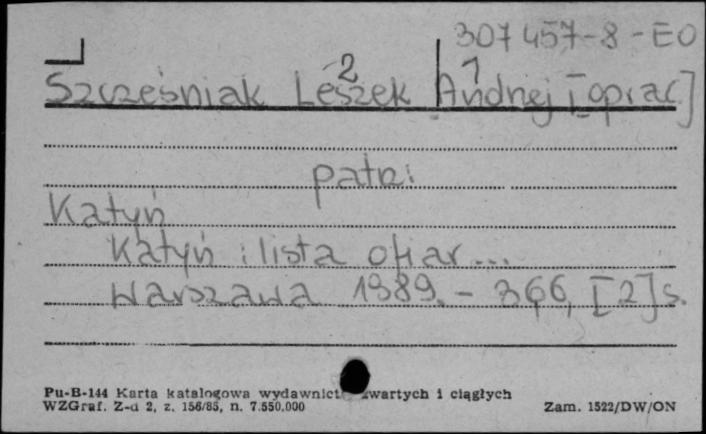 307457-8-EO
2 1
Szcześniak Leszek Andrzej [oprac]
patrz:
Katyń
Katyń : lista ofiar...
Warszawa 1989. - 366, [2] s.
Pu-B-144 Karta katalogowa wydawnict zwartych i ciągłych
WZGraf. Z-d 2, z. 156/85, n. 7.550.000
Zam. 1522/DW/ON